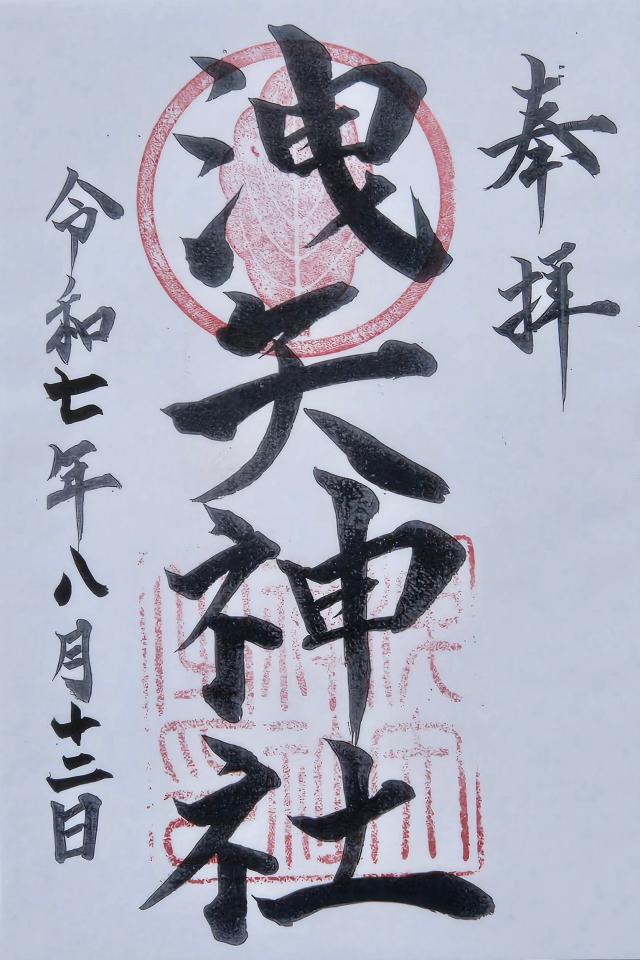 奉拝
洩矢神社
令和七年八月十二日